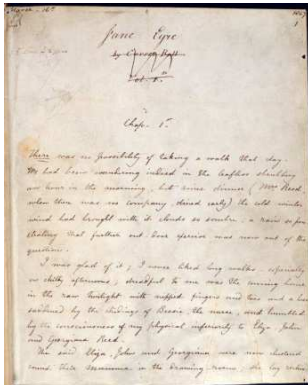 Jane Eyre
by Currer Bell
Vol. 1st
Chap. 1st
There was no possibility of taking a walk that day.
We had been wandering indeed in the leafless shrubbery
an hour in the morning, but since dinner (Mrs Reed,
when there was no company, dined early) the cold winter
wind had brought with it clouds so sombre, a rain so pene-
trating that further out-door exercise was now out of the
question.
I was glad of it; I never liked long walks - especially
on chilly afternoons; dreadful to me was the coming home
in the raw twilight with nipped fingers and toes and a heart
saddened by the chidings of Bessie, the nurse, and humbled
by the consciousness of my physical inferiority to Eliza, John
and Georgiana Reed.
The said Eliza, John and Georgiana were now clustered
round their mamma in the drawing-room; she lay